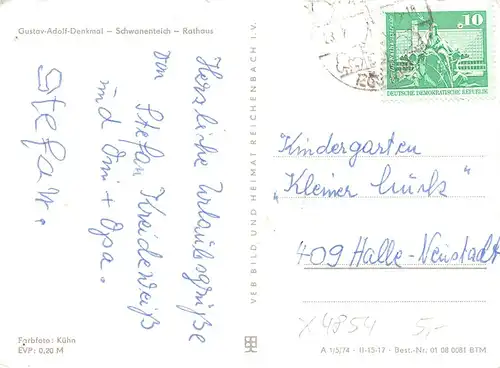 Gustav-Adolf-Denkmal – Schwanenteich – Rathaus
Herzliche Urlaubsgrüße
von Stefan Kreideweiß
und Omi + Opa.
Stefan.
Farbfoto: Kühn
EVP: 0,20 M
VEB BILD UND HEIMAT REICHENBACH I. V.
10
DEUTSCHE DEMOKRATISCHE REPUBLIK
Kindergarten
"Kleiner Muck"
409 Halle-Neustadt
X 4854 5,-
A 1/5/74 – II-15-17 · Best.-Nr. 01 08 0081 BTM